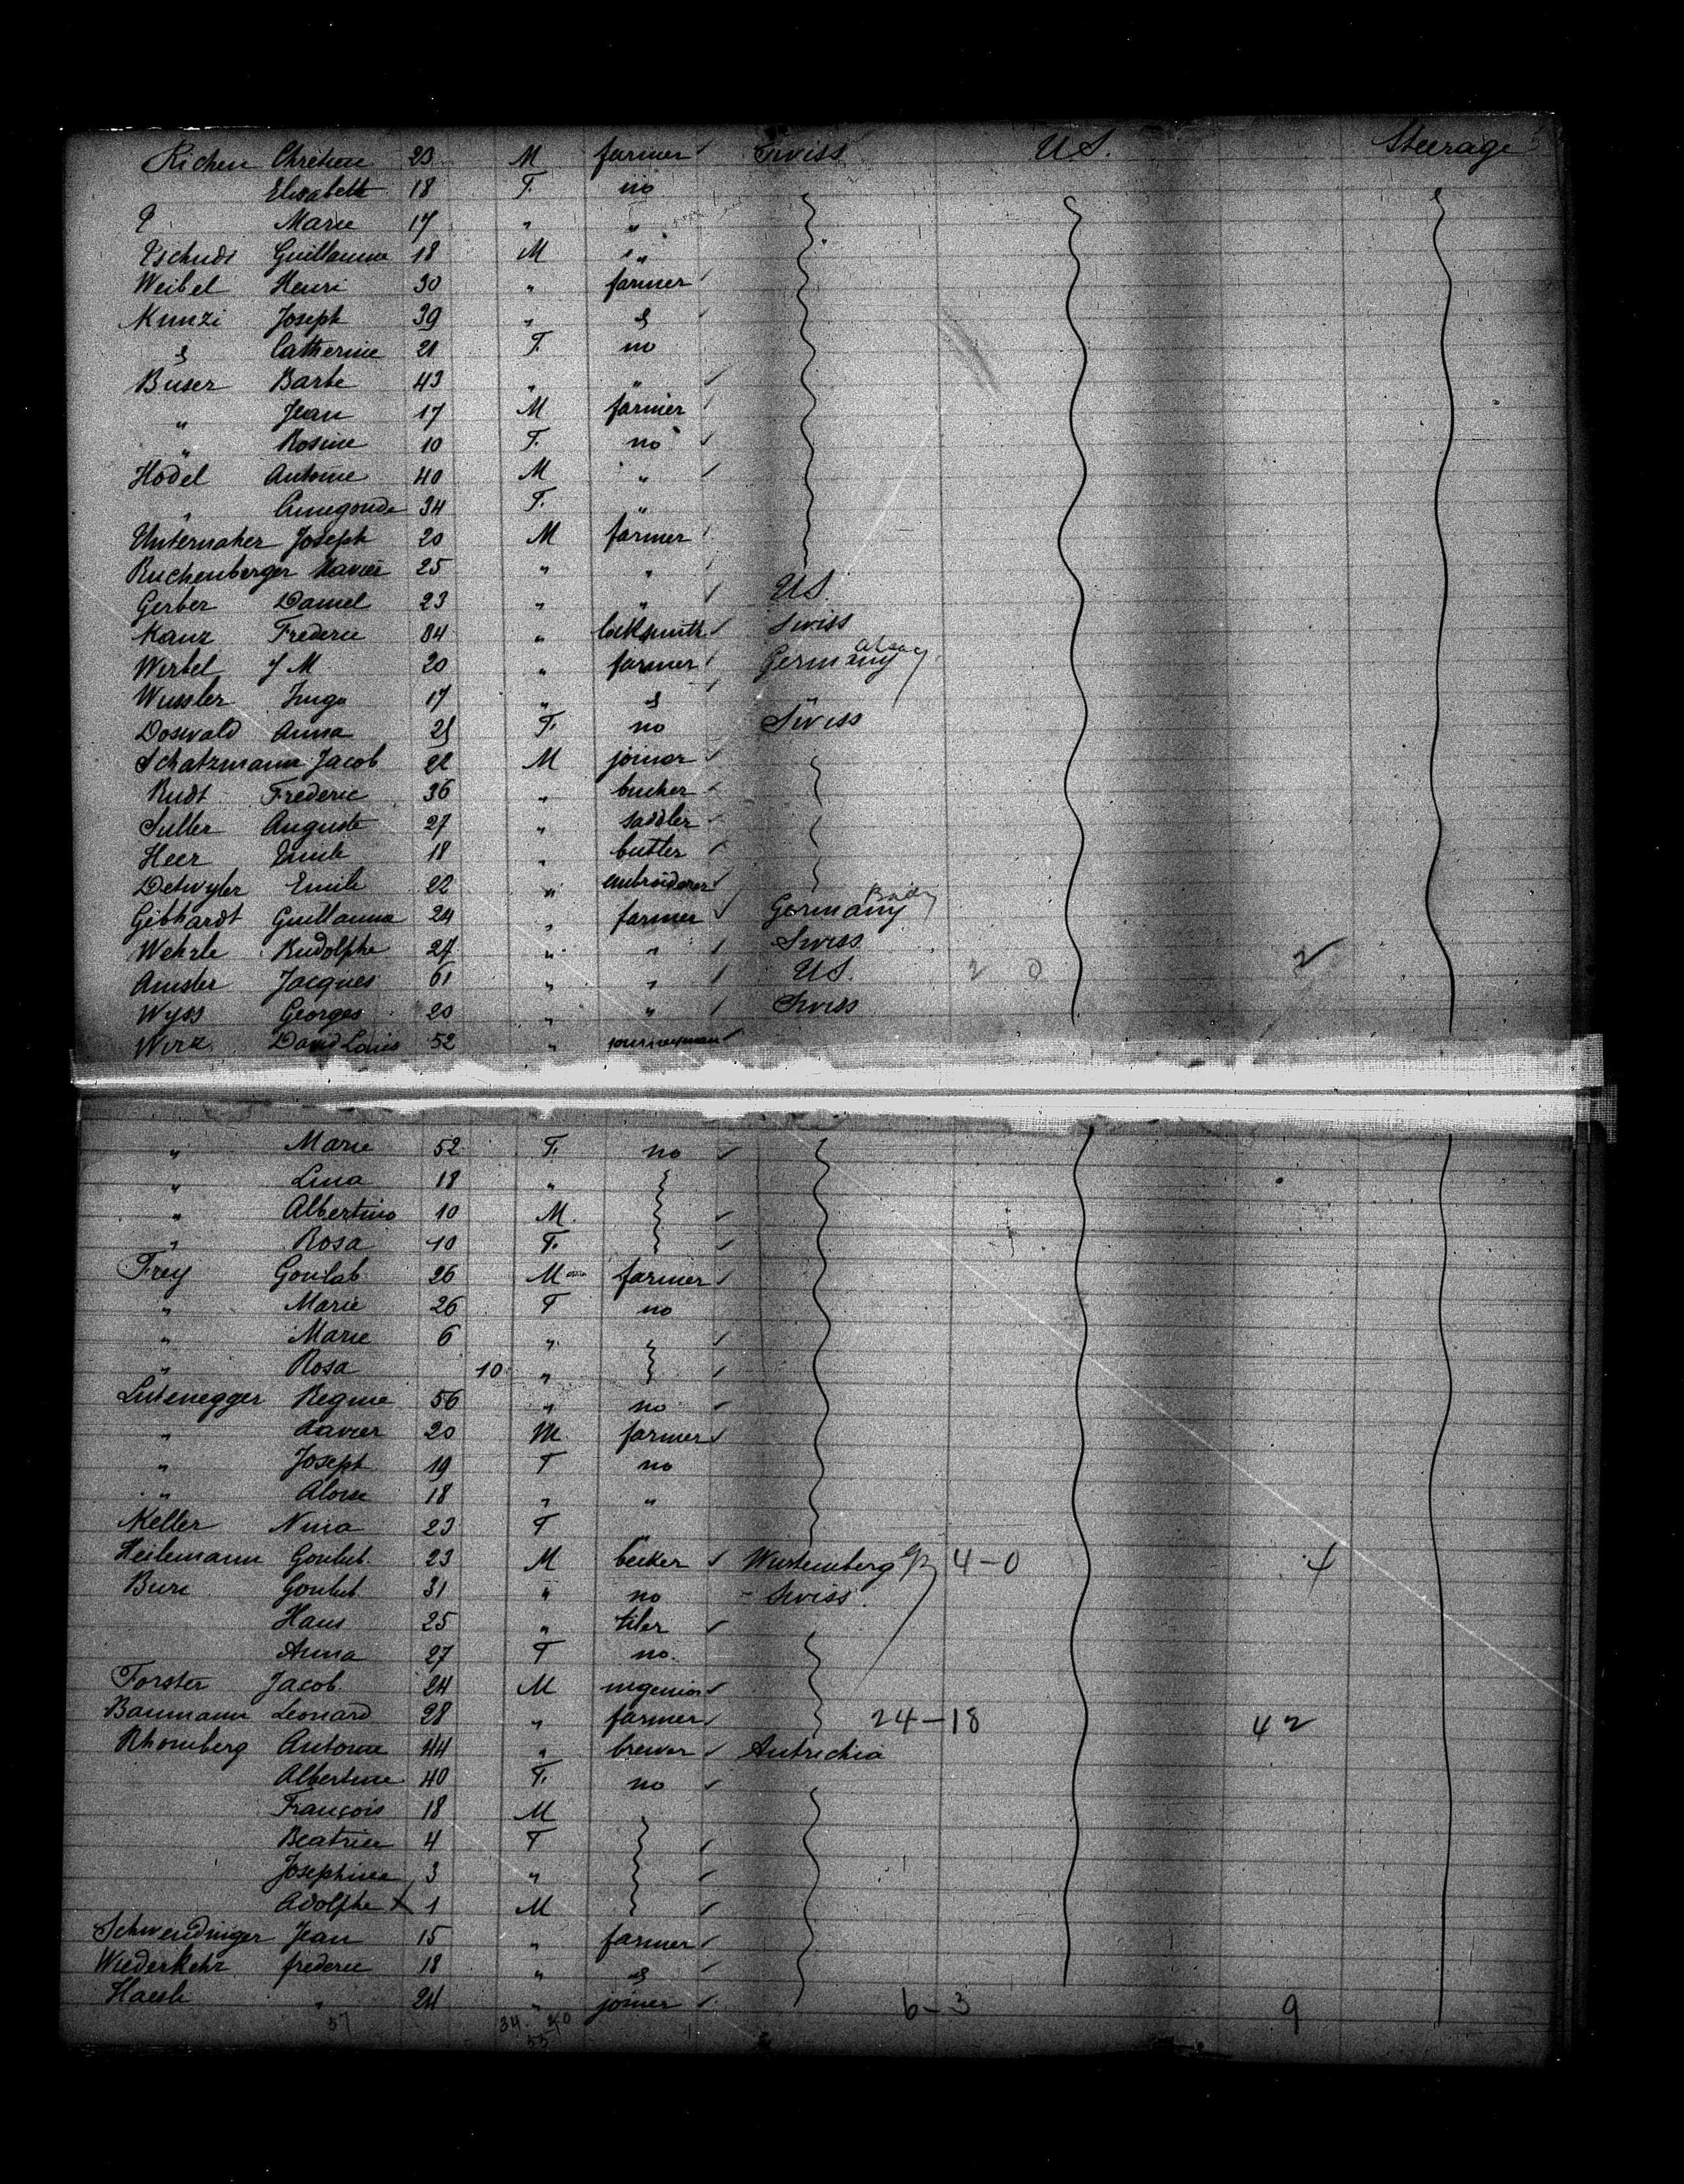 Richen Chrétien 23 M farmer Swiss U S. Steerage
Elisabeth 18 F. no
" Marie 17 " "
Tschudi Guillaume 18 M "
Weibel Henri 30 " farmer
Kunzi Joseph 39 " "
" Catherine 21 F. no
Buser Barbe 43 " "
" Jean 17 M farmer
" Rosine 10 F. no
Hodel Antoine 40 M "
" Cunegonde 34 F. "
Unternaher Joseph 20 M farmer
Ruchenberger Xavier 25 " "
Gerber Daniel 23 " " U S.
Kanz Frederic 34 " locksmith Swiss
Wirbel J M 20 " farmer Germany alsac
Wussler Hugo 17 " " "
Doswald Anna 21 F. no Swiss
Schatzmann Jacob 22 M joiner
Rudt Frederic 36 " bucher
Suller Auguste 27 " saddler
Heer Emile 18 " butler
Detwyler Emile 22 " embroiderer
Gebhardt Guillaume 24 " farmer Germany Bad
Wehrle Rudolphe 27 " " Swiss
Amsler Jacques 61 " " U S. 2 0 2
Wyss Georges 20 " " Swiss
Wirz David Louis 52 " journeyman
" Marie 52 F. no
" Lina 18 "
" Albertino 10 M.
" Rosa 10 F.
Frey Goulab 26 M farmer
" Marie 26 F no
" Marie 6 "
" Rosa 10 "
Lutenegger Regine 56 " no
" Xavier 20 M. farmer
" Joseph 19 F no
" Aloise 18 " "
Keller Nina 23 F "
Heilemann Goulub. 23 M becker Wurtemberg 4-0 4
Buri Goulub 31 " no - Swiss.
Hans 25 " tiler
Anna 27 F no.
Forster Jacob. 24 M ingenior
Baumann Leonard 28 " farmer 24-18 42
Rhomberg Antoine 44 " brewer Autrichia
Albertine 40 F. no
François 18 M
Beatrice 4 F
Josephine 3 "
Adolphe X 1 M
Schwendinger Jean 15 " farmer
Wiederkehr frederic 18 " "
Haesli " 24 " joiner 6-3 9
57 34. 20
55